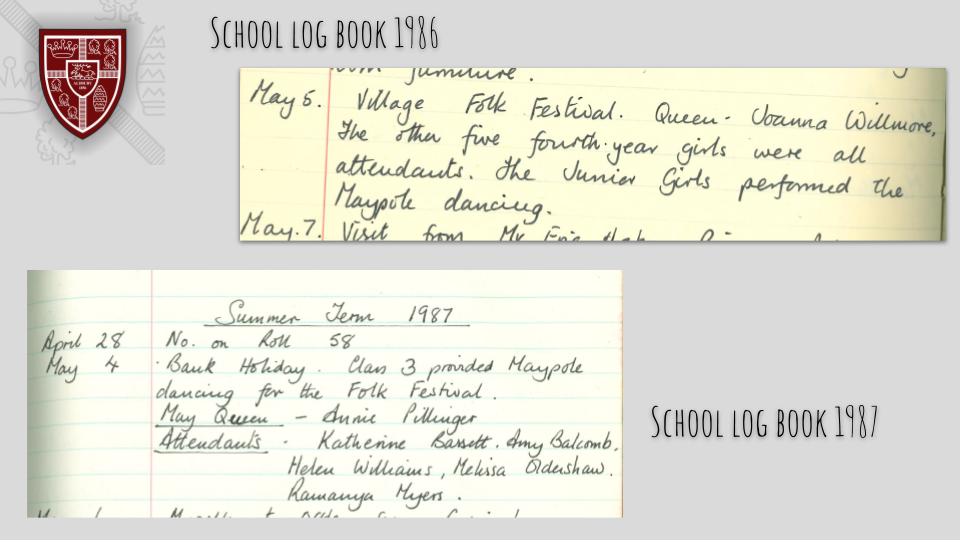 School log book 1986
furniture.
May 5. Village Folk Festival. Queen - Joanna Willmore,
The other five fourth-year girls were all
attendants. The Junior Girls performed the
Maypole dancing.
May. 7. Visit from Mr Eric
Summer Term 1987
April 28 No. on Roll 58
May 4 · Bank Holiday. Class 3 provided Maypole
dancing for the Folk Festival.
May Queen - Annie Pillinger
Attendants - Katherine Bassett. Amy Balcomb.
Helen Williams, Melissa Oldershaw.
Ramanya Myers.
School log book 1987